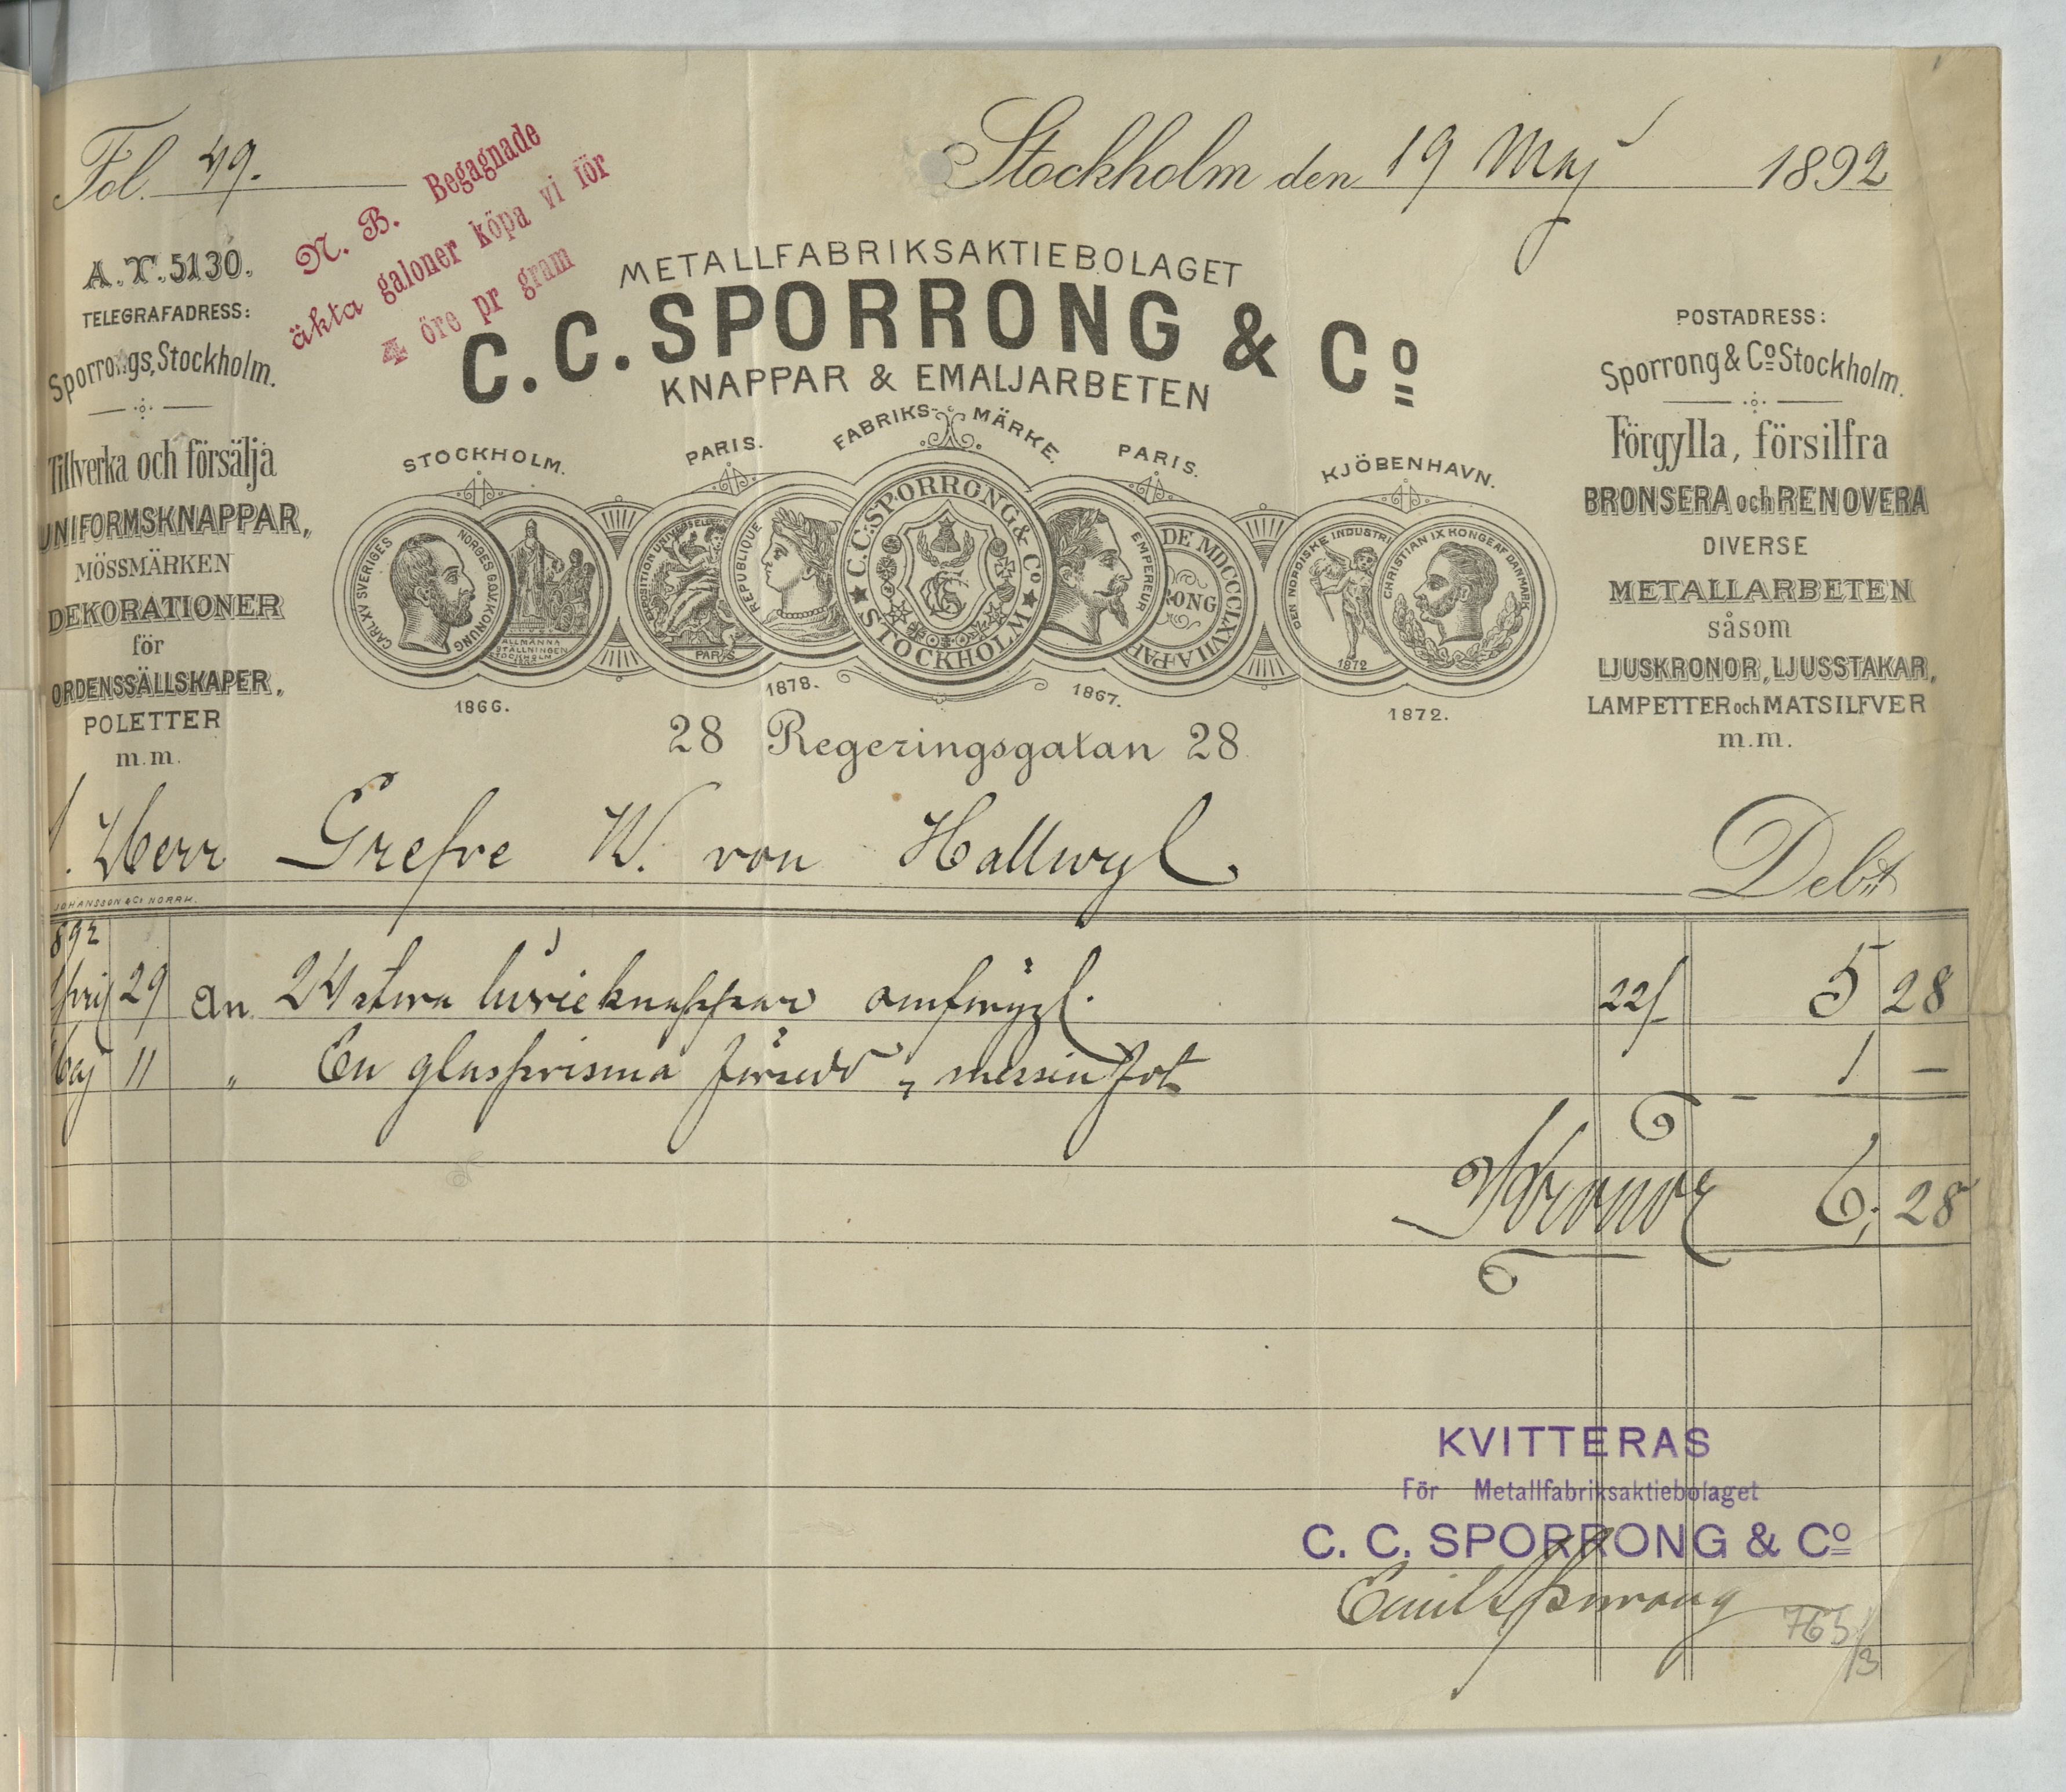 Fol. 49.
Stockholm den 19 Maj 1892
N. B. Begagnade
äkta galoner köpa vi för
4 öre pr gram
A.T. 5130.
TELEGRAFADRESS:
Sporrongs, Stockholm.
Tillverka och försälja
UNIFORMSKNAPPAR,
MÖSSMÄRKEN
DEKORATIONER
för
ORDENSSÄLLSKAPER,
POLETTER
m.m.
METALLFABRIKSAKTIEBOLAGET
C. C. SPORRONG & Co
KNAPPAR & EMALJARBETEN
FABRIKS-MÄRKE.
STOCKHOLM.
PARIS.
PARIS.
KJÖBENHAVN.
CARL XV SVERIGES NORGES GÖT KONUNG
ALLMÄNNA
STÄLLNINGEN
STOCKHOLM
EXPOSITION UNIVERSELLE
PARIS
REPUBLIQUE
C. C. SPORRONG & Co
STOCKHOLM
EMPEREUR
DE MDCCCLXVII A PAR
RONG
DEN NORDISKE INDUSTRI
1872
CHRISTIAN IX KONGE AF DANMARK
1866.
1878.
1867.
1872.
28 Regeringsgatan 28
POSTADRESS:
Sporrong & Co Stockholm.
Förgylla, försilfra
BRONSERA och RENOVERA
DIVERSE
METALLARBETEN
såsom
LJUSKRONOR, LJUSSTAKAR,
LAMPETTER och MATSILFVER
m.m.
Herr Grefve W. von Hallwyl. Debit
JOHANSSON & Co NORRK.
892
April 29 An 24 stora livréeknappar omförgyl. 22/ 5 28
Maj 11 " En glasprisma försedd messin fot 1 —
Kronor 6, 28
KVITTERAS
För Metallfabriksaktiebolaget
C. C. SPORRONG & Co
Emil Sporrong
765/3